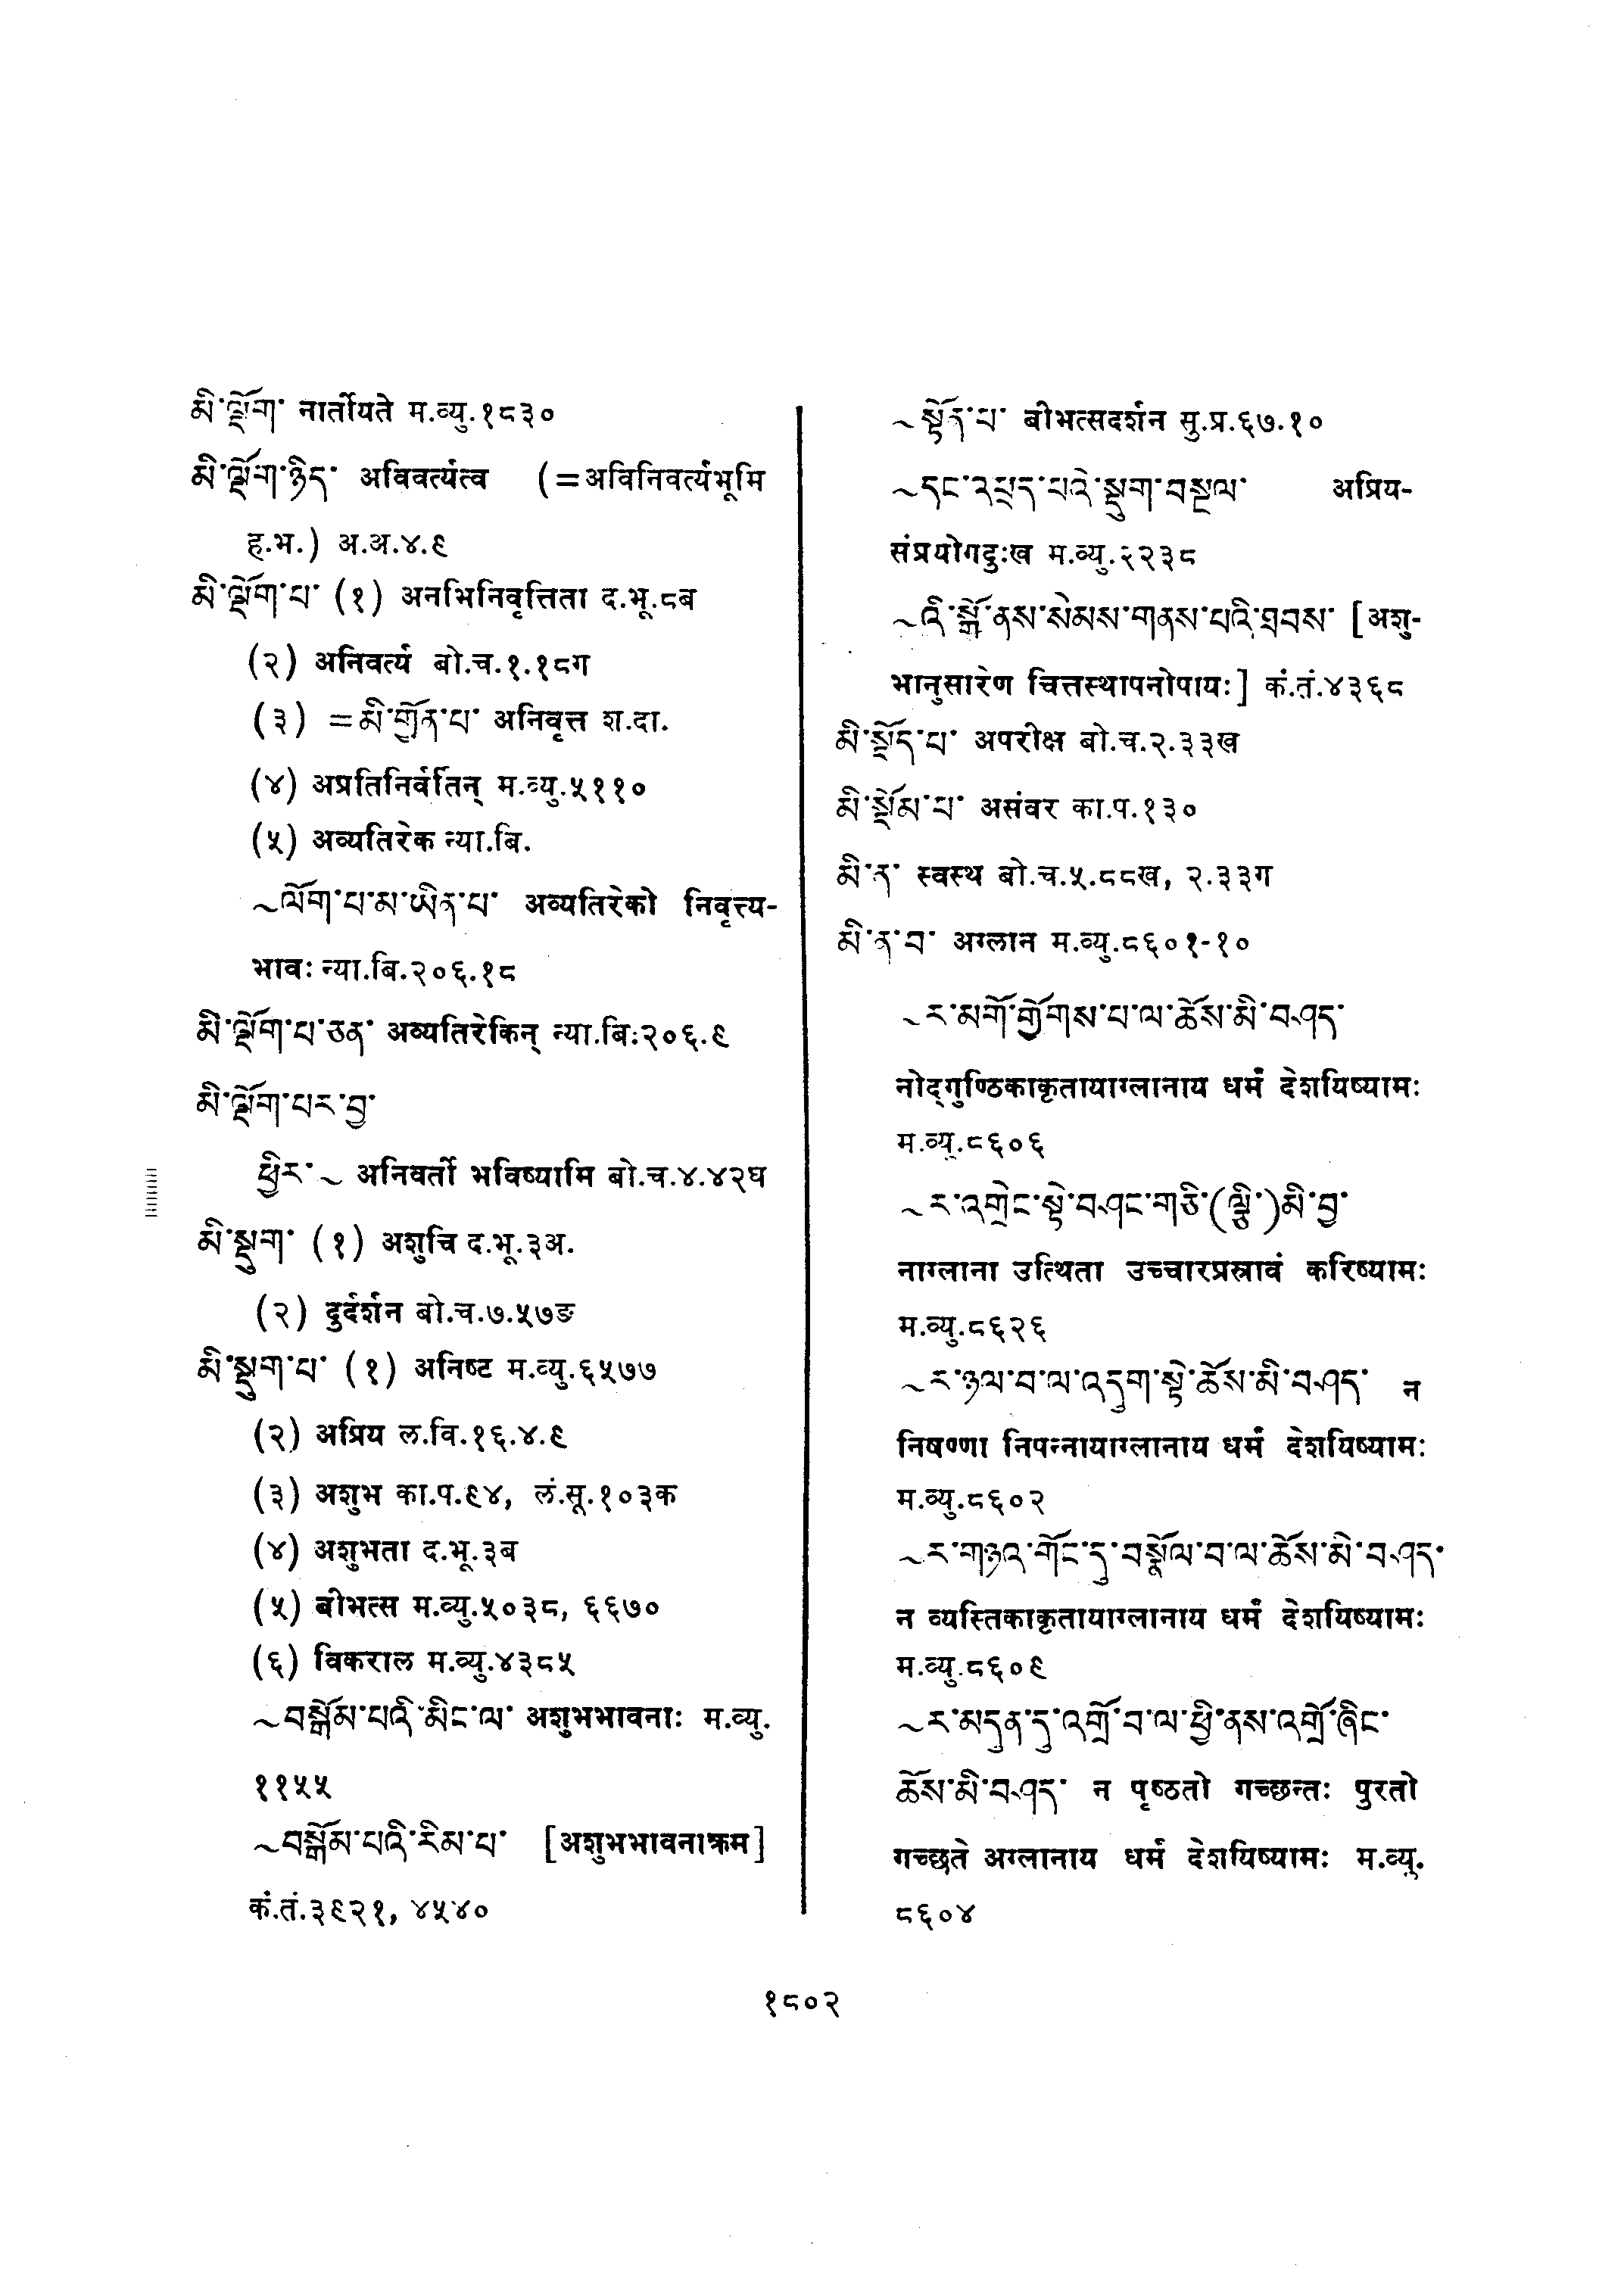 མི་ལྡོག་ नार्तोयते म.व्यु.१८३०
མི་ལྡོག་ཉིད་ अविवर्त्यत्व (=अविनिवर्त्यभूमि
ह.भ.) अ.अ.४.९
མི་ལྡོག་པ་ (१) अनभिनिवृत्तिता द.भू.८ब
(२) अनिवर्त्य बो.च.१.१८ग
(३) =མི་གྱོན་པ་ अनिवृत्त श.दा.
(४) अप्रतिनिर्वर्तिन् म.व्यु.५११०
(५) अव्यतिरेक न्या.बि.
~ལོག་པ་མ་ཡིན་པ་ अव्यतिरेको निवृत्त्य-
भावः न्या.बि.२०६.१८
མི་ལྡོག་པ་ཅན་ अव्यतिरेकिन् न्या.बिः२०६.९
མི་ལྡོག་པར་བྱ་
ཕྱིར་~ अनिवर्तो भविष्यामि बो.च.४.४२घ
མི་སྡུག་ (१) अशुचि द.भू.३अ.
(२) दुर्दर्शन बो.च.७.५७ङ
མི་སྡུག་པ་ (१) अनिष्ट म.व्यु.६५७७
(२) अप्रिय ल.वि.१६.४.९
(३) अशुभ का.प.९४, लं.सू.१०३क
(४) अशुभता द.भू.३ब
(५) बीभत्स म.व्यु.५०३८, ६६७०
(६) विकराल म.व्यु.४३८५
~བསྒོམ་པའི་མིང་ལ་ अशुभभावनाः म.व्यु.
११५५
~བསྒོམ་པའི་རིམ་པ་ [अशुभभावनाक्रम]
कं.तं.३९२१, ४५४०
~སྟོན་པ་ बीभत्सदर्शन सु.प्र.६७.१०
~དང་འཕྲད་པའི་སྡུག་བསྔལ་ अप्रिय-
संप्रयोगदुःख म.व्यु.२२३८
~འི་སྒོ་ནས་སེམས་གནས་པའི་ཐབས་ [अशु-
भानुसारेण चित्तस्थापनोपायः] कं.तं.४३६८
མི་སྡོད་པ་ अपरीक्ष बो.च.२.३३ख
མི་སྡོམ་པ་ असंवर का.प.१३०
མི་ན་ स्वस्थ बो.च.५.८८ख, २.३३ग
མི་ན་བ་ अग्लान म.व्यु.८६०१-१०
~ར་མགོ་གྱོགས་པ་ལ་ཆོས་མི་བཤད་
नोद्गुण्ठिकाकृतायाग्लानाय धर्मं देशयिष्यामः
म.व्यु.८६०६
~ར་འགྲེང་སྟེ་བཤང་གཅི་(ལྕི་)མི་བྱ་
नाग्लाना उत्थिता उच्चारप्रस्रावं करिष्यामः
म.व्यु.८६२६
~ར་ཉལ་བ་ལ་འདུག་སྟེ་ཆོས་མི་བཤད་ न
निषण्णा निपन्नायाग्लानाय धर्मं देशयिष्यामः
म.व्यु.८६०२
~ར་གཉའ་གོང་དུ་བསྣོལ་བ་ལ་ཆོས་མི་བཤད་
न व्यस्तिकाकृतायाग्लानाय धर्मं देशयिष्यामः
म.व्यु.८६०९
~ར་མདུན་དུ་འགྲོ་བ་ལ་ཕྱི་ནས་འགྲོ་ཞིང་
ཆོས་མི་བཤད་ न पृष्ठतो गच्छन्तः पुरतो
गच्छते अग्लानाय धर्मं देशयिष्यामः म.व्यु.
८६०४
१८०२